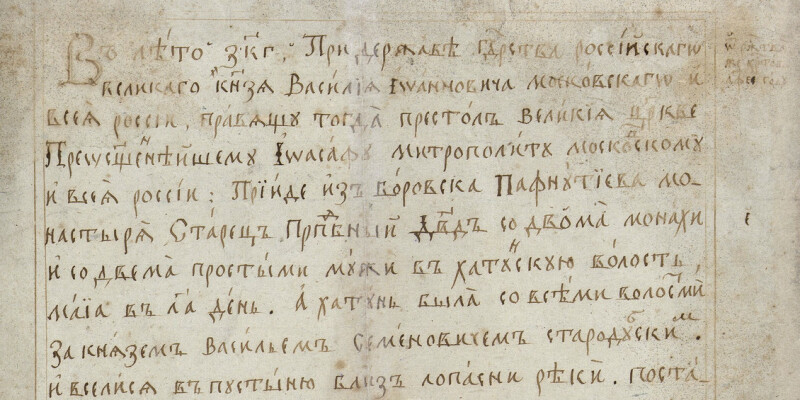 Въ лѣто ҂зкг, При державѣ гдрства россїйскагѡ
великаго кнзя Василїя Іѡанновича московскагѡ и
всея россїи, правящу тогда престолъ великїя цркве
Преѡсщеннѣйшему Іѡасафу митрополиту московскому
и всея россїи: Прїиде изъ боровска Пафнутїева мо-
настыря Старецъ Прпбный Двдъ со двома монахи
и со двема простыми мужи въ хатунскую волость,
маїа въ la день. А хатунь была со всѣми волостми
за княземъ Васильемъ Семеновичемъ стародубским.
и вселися въ пустыню близъ лопасни рѣки. поста-